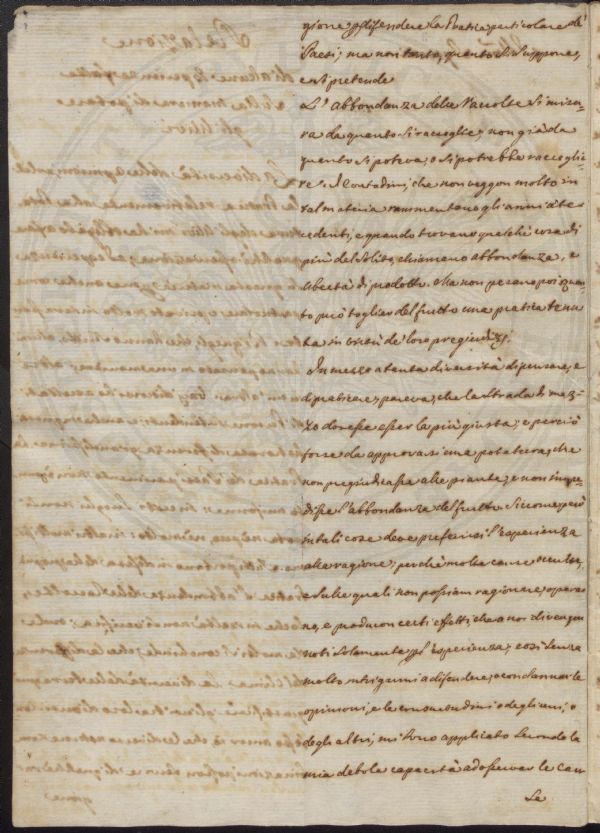 gione p difendere la Pratica particolare de'
Paesi; ma non tanto, quanto si suppone,
e si pretende.
L'abbondanza delle raccolte si misu-
ra da quanto si raccoglie, non già da
quanto si poteva, o si potrebbe raccoglie-
re. I Contadini, che non veggon molto in
tal materia rammentano gli anni ante-
cedenti, e quando trovano qualche cosa di
più del solito, chiamano abbondanza, e
libertà di prodotto. Ma non pesano poi quan-
to può toglier del frutto una pratica tenu-
ta in virtù de' loro pregiudizj.
In mezzo a tanta diversità di pensare, e
di praticare, pareva, che la strada di mez-
zo dovesse esser la più giusta; e perciò
forse da approvarsi una potatura, che
non pregiudicasse alle piante, e non impe-
disse l'abbondanza del frutto. Siccome però
in tali cose deve preferirsi l'esperienza
alla ragione; perchè molte cause occulte,
e sulle quali non possiam ragionare, opera-
no, e producon certi effetti, che a noi divengon
noti solamente p esperienza; così senza
molto intrigarmi a difendere, o condannar le
opinioni, e le consuetudini o degli uni, o
degli altri, mi sono applicato secondo la
mia debole capacità ad osservar le cau-
se